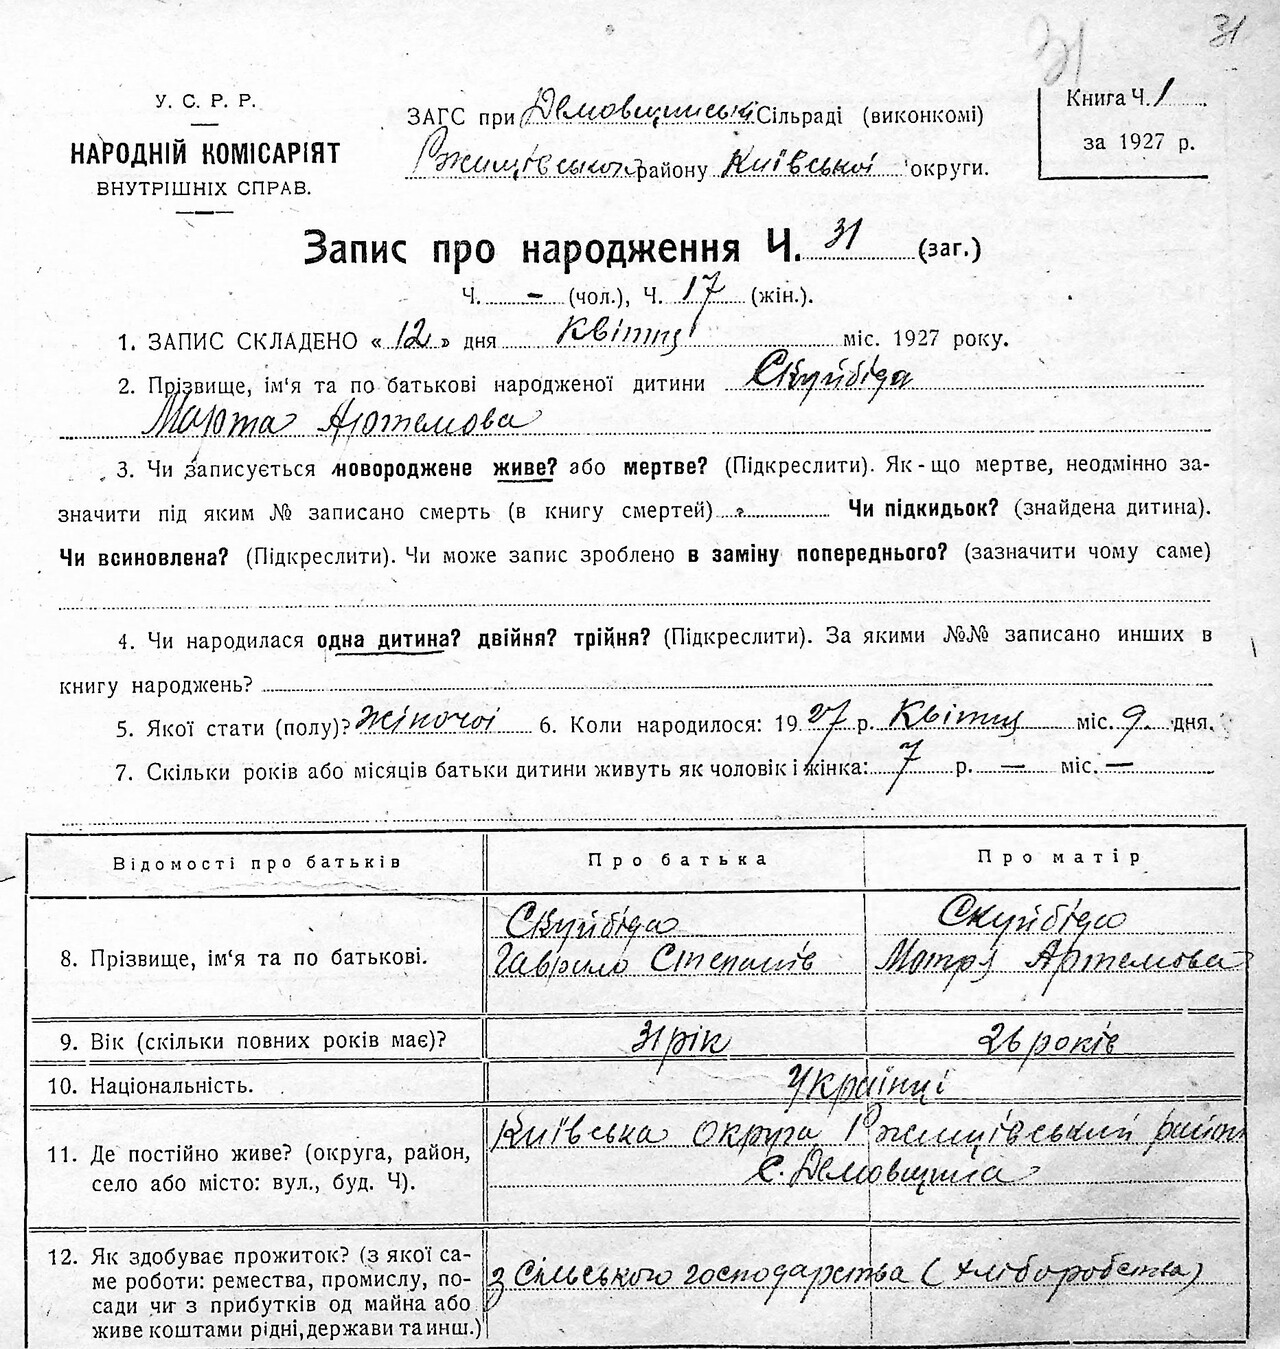 31 31
У. С. Р. Р.
НАРОДНІЙ КОМІСАРІЯТ
ВНУТРІШНІХ СПРАВ.
ЗАГС при Демовщинській Сільраді (виконкомі)
Ржищівського району Київської округи.
Книга Ч. 1
за 1927 р.
Запис про народження Ч. 31 (заг.)
Ч. – (чол.), Ч. 17 (жін.).
1. ЗАПИС СКЛАДЕНО « 12 » дня Квітня міс. 1927 року.
2. Прізвище, ім'я та по батькові народженої дитини Скуйбіда
Марта Артемова
3. Чи записується новороджене живе? або мертве? (Підкреслити). Як-що мертве, неодмінно за-
значити під яким № записано смерть (в книгу смертей) Чи підкидьок? (знайдена дитина).
Чи всиновлена? (Підкреслити). Чи може запис зроблено в заміну попереднього? (зазначити чому саме)
4. Чи народилася одна дитина? двійня? трійня? (Підкреслити). За якими №№ записано инших в
книгу народжень?
5. Якої стати (полу)? жіночої 6. Коли народилося: 1927 р. Квітня міс. 9 дня.
7. Скільки років або місяців батьки дитини живуть як чоловік і жінка: 7 р. — міс. —
Відомості про батьків Про батька Про матір
8. Прізвище, ім'я та по батькові. Скуйбіда Гаврило Степанів Скуйбіда Мотря Артемова
9. Вік (скільки повних років має)? 31 рік 26 років
10. Національність. Українці
11. Де постійно живе? (округа, район, село або місто: вул., буд. Ч). Київська округа Ржищівський район
с. Демовщина
12. Як здобуває прожиток? (з якої са-
ме роботи: ремества, промислу, по-
сади чи з прибутків од майна або
живе коштами рідні, держави та инш.)
з Сільського господарства (хліборобства)